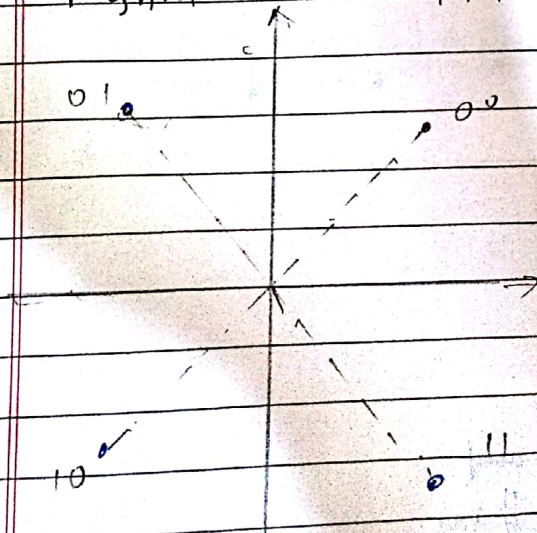 01 00
10 11